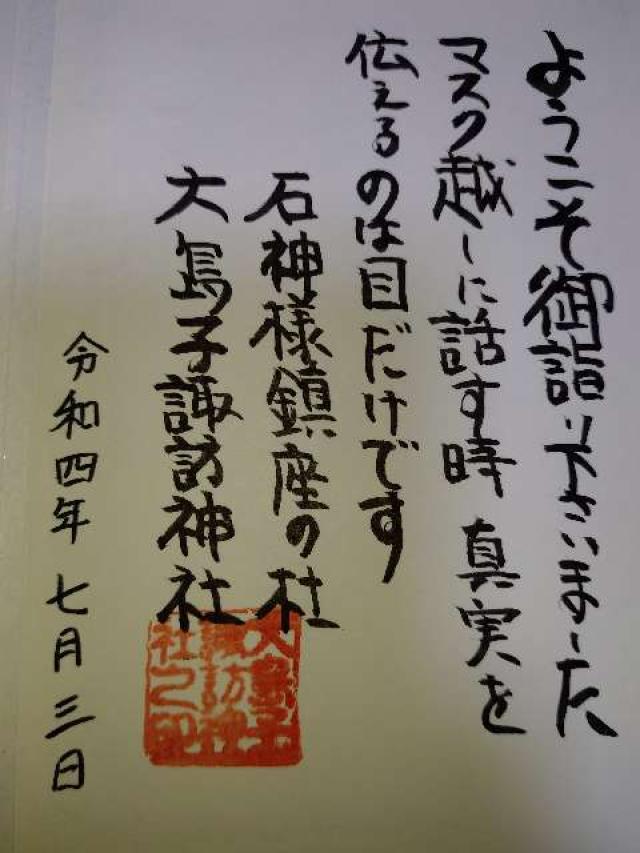 ようこそ御詣り下さいました
マスク越しに話す時 真実を
伝えるのは目だけです
石神様鎮座の杜
大島子諏訪神社
令和四年 七月三日